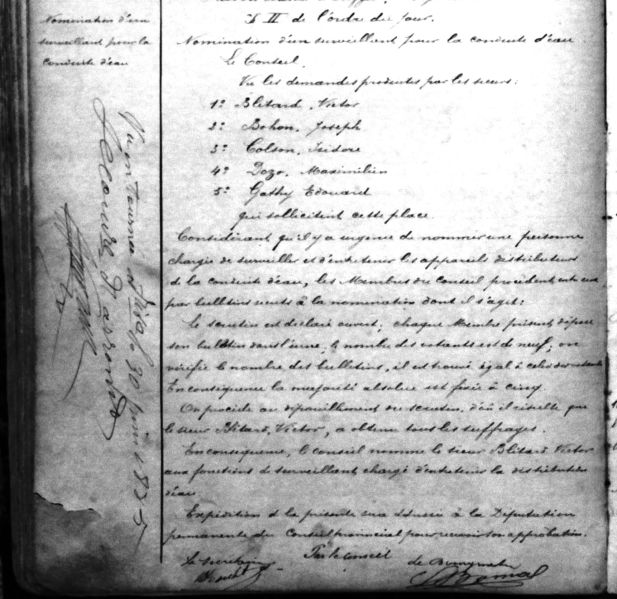 § II de l'ordre du jour.
Nomination d'un
surveillant pour la
conduite d'eau
Nomination d'un surveillant pour la conduite d'eau
Le Conseil,
Vu les demandes produites par les sieurs:
1° Blitard, Victor
2° Bohon, Joseph
3° Colson, Isidore
4° Dozo, Maximilien
5° Gathy Edouard
qui sollicitent cette place.
Considérant qu'il y a urgence de nommer une personne
chargée de surveiller et d'entretenir les appareils distributeurs
de la conduite d'eau, les Membres du Conseil procèdent
par bulletins secrets à la nomination dont il s'agit:
Le scrutin est déclaré ouvert; chaque Membre présent, dépose
son bulletin dans l'urne, le nombre des votants est de neuf; on
vérifie le nombre des bulletins, il est trouvé égal à celui des votants
En conséquence la majorité absolue est fixée à cinq.
On procède au dépouillement du scrutin, d'où il résulte que
le sieur Blitard, Victor, a obtenu tous les suffrages.
En conséquence, le conseil nomme le sieur Blitard Victor
aux fonctions de surveillant, chargé d'entretenir la distribution
d'eau
Expédition de la présente sera adressée à la Députation
permanente du Conseil provincial pour recevoir son approbation.
Par le conseil
Le Secrétaire
Le Bourgmestre
Vu en tournée
Le Commissaire d'arrond